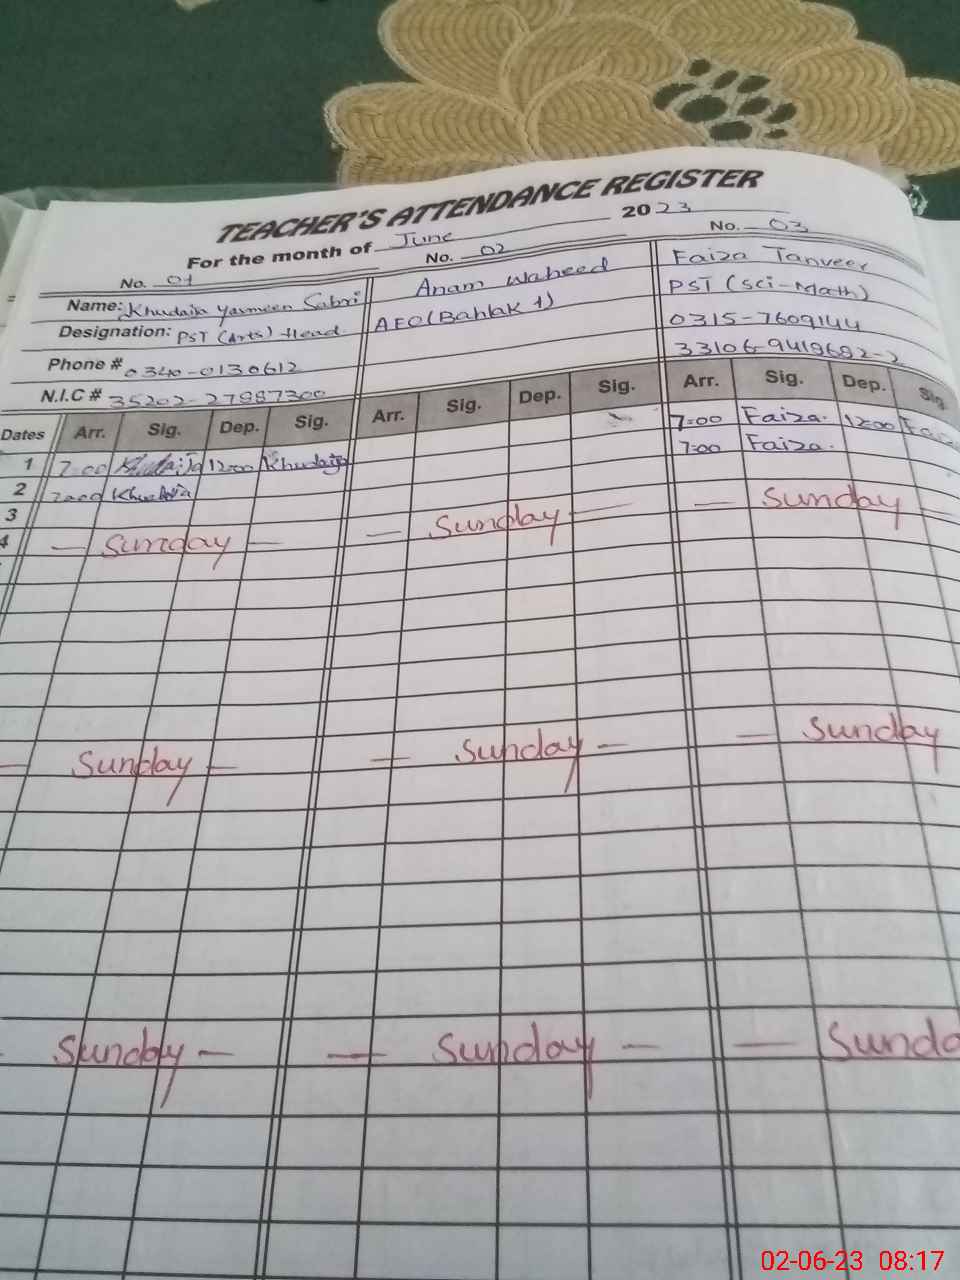 TEACHER'S ATTENDANCE REGISTER
For the month of June 2023
No. 01 No. 02 No. 03
Name: Khudaija Yasmeen Sabri Anam Waheed Faiza Tanveer
Designation: PST (Arts) Head AEO (Bahlak 1) PST (Sci-Math)
Phone # 0340-0130612 0315-7609144
N.I.C # 35202-27987300 33106-9419692-2
Dates Arr. Sig. Dep. Sig. Arr. Sig. Dep. Sig. Arr. Sig. Dep. Sig.
1 7:00 Khudaija 12:00 Khudaija 7:00 Faiza. 12:00 Faiza
2 7:00 Khudaija 7:00 Faiza.
3
4 — Sunday — — Sunday — — Sunday —
— Sunday — — Sunday — — Sunday
- Sunday — — Sunday — — Sunda
02-06-23 08:17